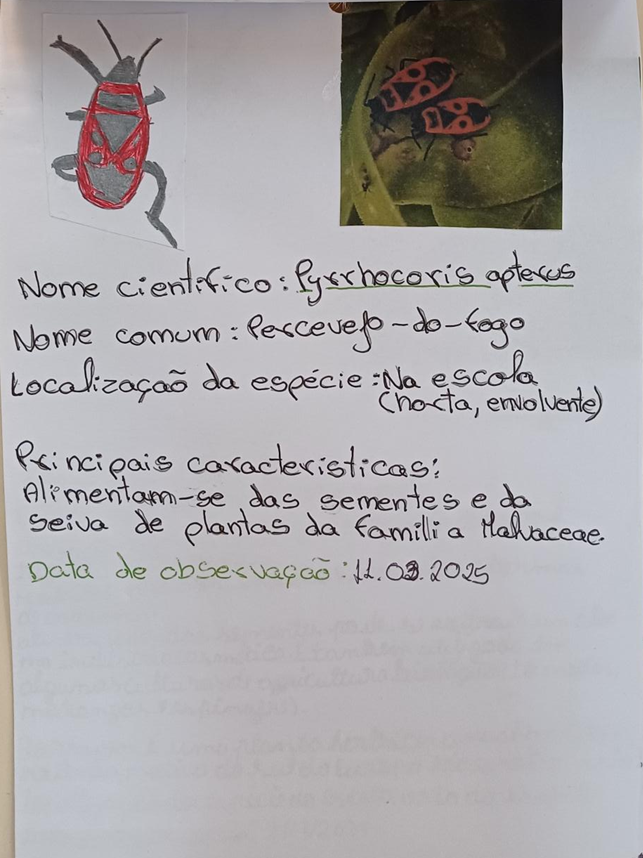 Nome científico: Pyrrhocoris apterus
Nome comum: Percevejo-do-fogo
Localização da espécie: Na escola
(horta, envolvente)
Principais características:
Alimentam-se das sementes e da
seiva de plantas da família Malvaceae.
Data de observação: 11.03.2025